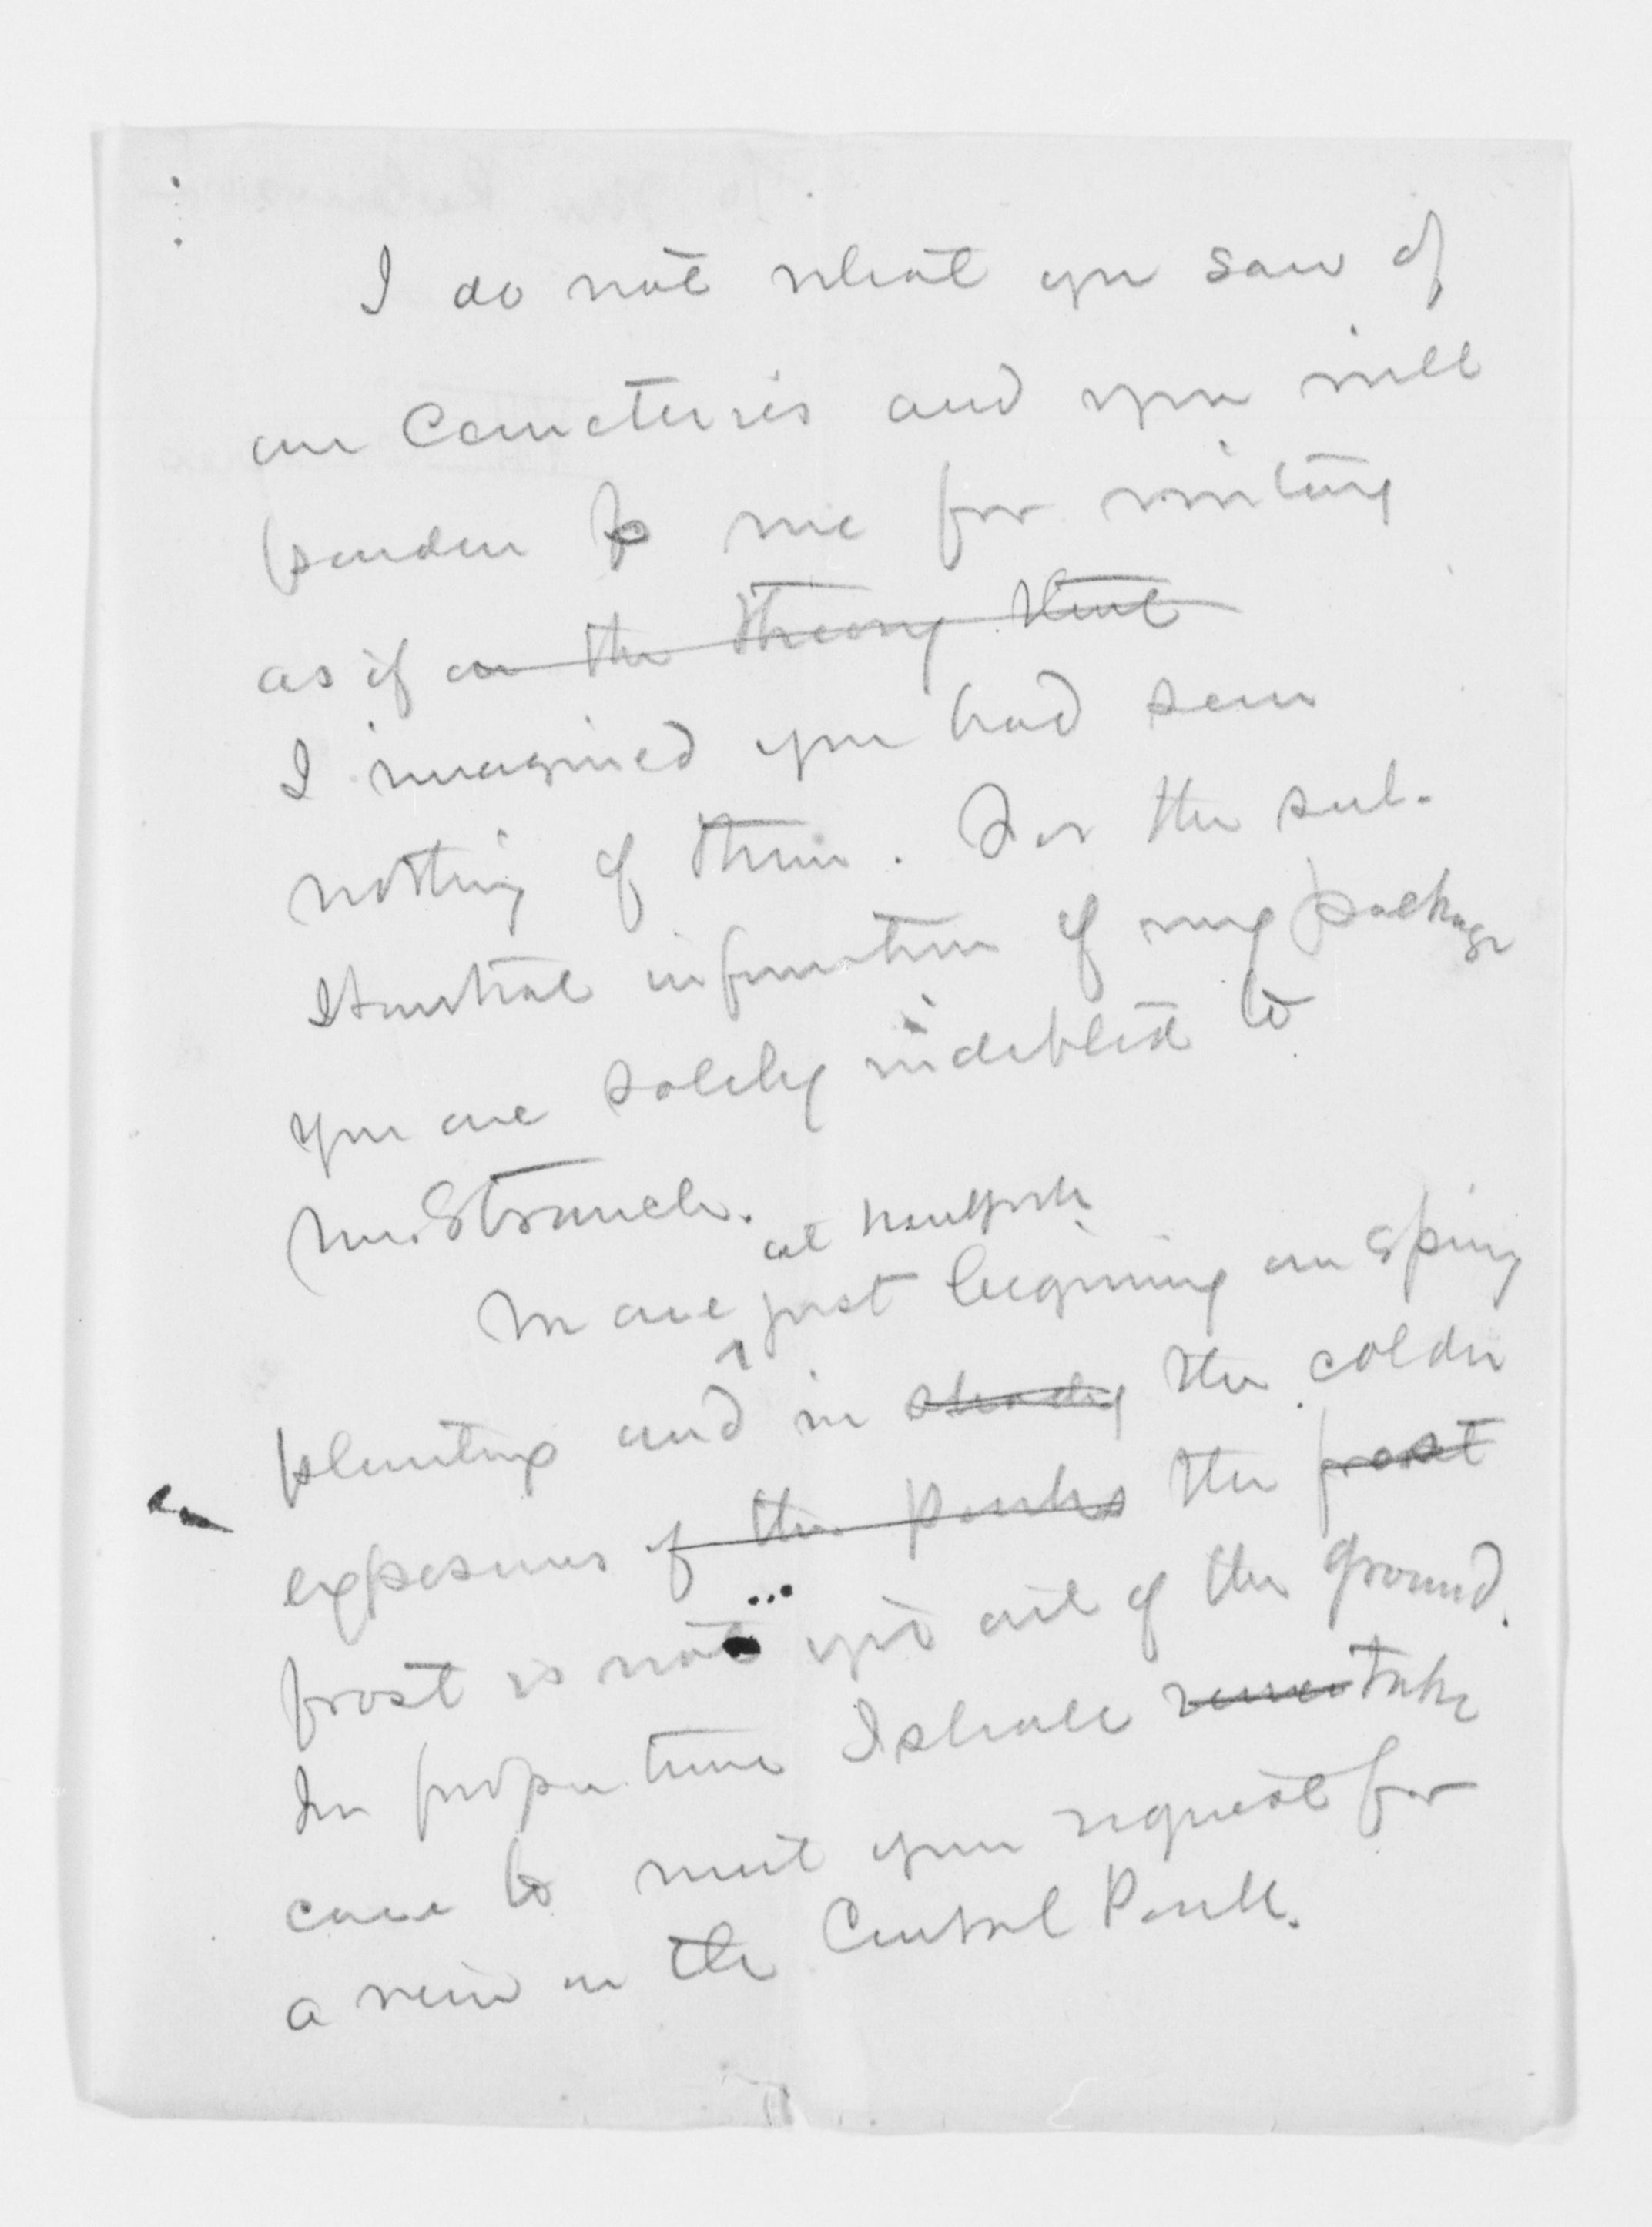 I do not what you saw of
our Cemeteries and you will
pardon to me for writing
as if on the theory that
I imagined you had seen
nothing of them. For the sub-
stantial information of my package
you are solely indebted to
Mr. Strauch.
at New York
We are just beginning our spring
planting and in shady the colder
exposures of the parks the frost
frost is not yet out of the ground.
In proper time I shall take
care to meet your request for
a view in the Central Park.